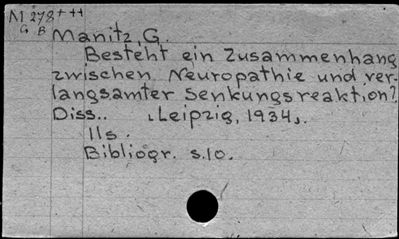 M 278+++
G B
Manitz, G.
Besteht ein Zusammenhang
zwischen Neuropathie und ver-
langsamter Senkungsreaktion?
Diss.. Leipzig, 1934.
11s.
Bibliogr. s.10.